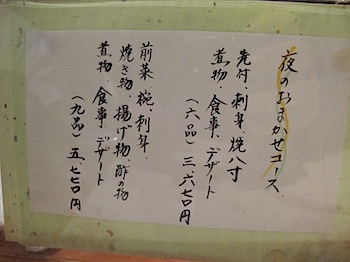 夜のおまかせコース
先付、刺身、焼八寸
煮物、食事、デザート
(六品) 三、六七〇円
前菜、椀、刺身、
焼き物、揚げ物、酢の物
煮物、食事、デザート
(九品) 五、七七〇円